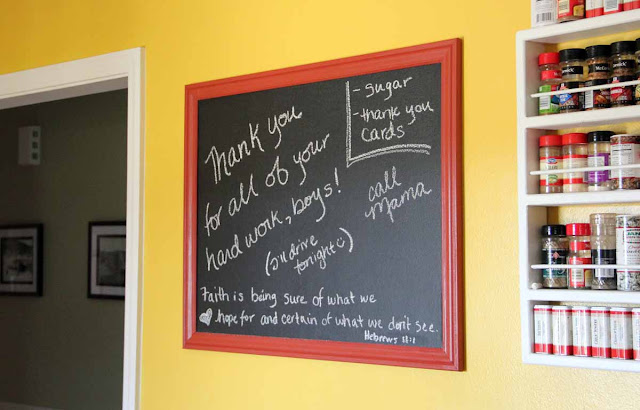 Thank you
for all of your
hard work, boys!
(I'll drive
tonight☺)
- sugar
- thank you
cards
call
mama
Faith is being sure of what we
♥ hope for and certain of what we don't see.
Hebrews 11:1